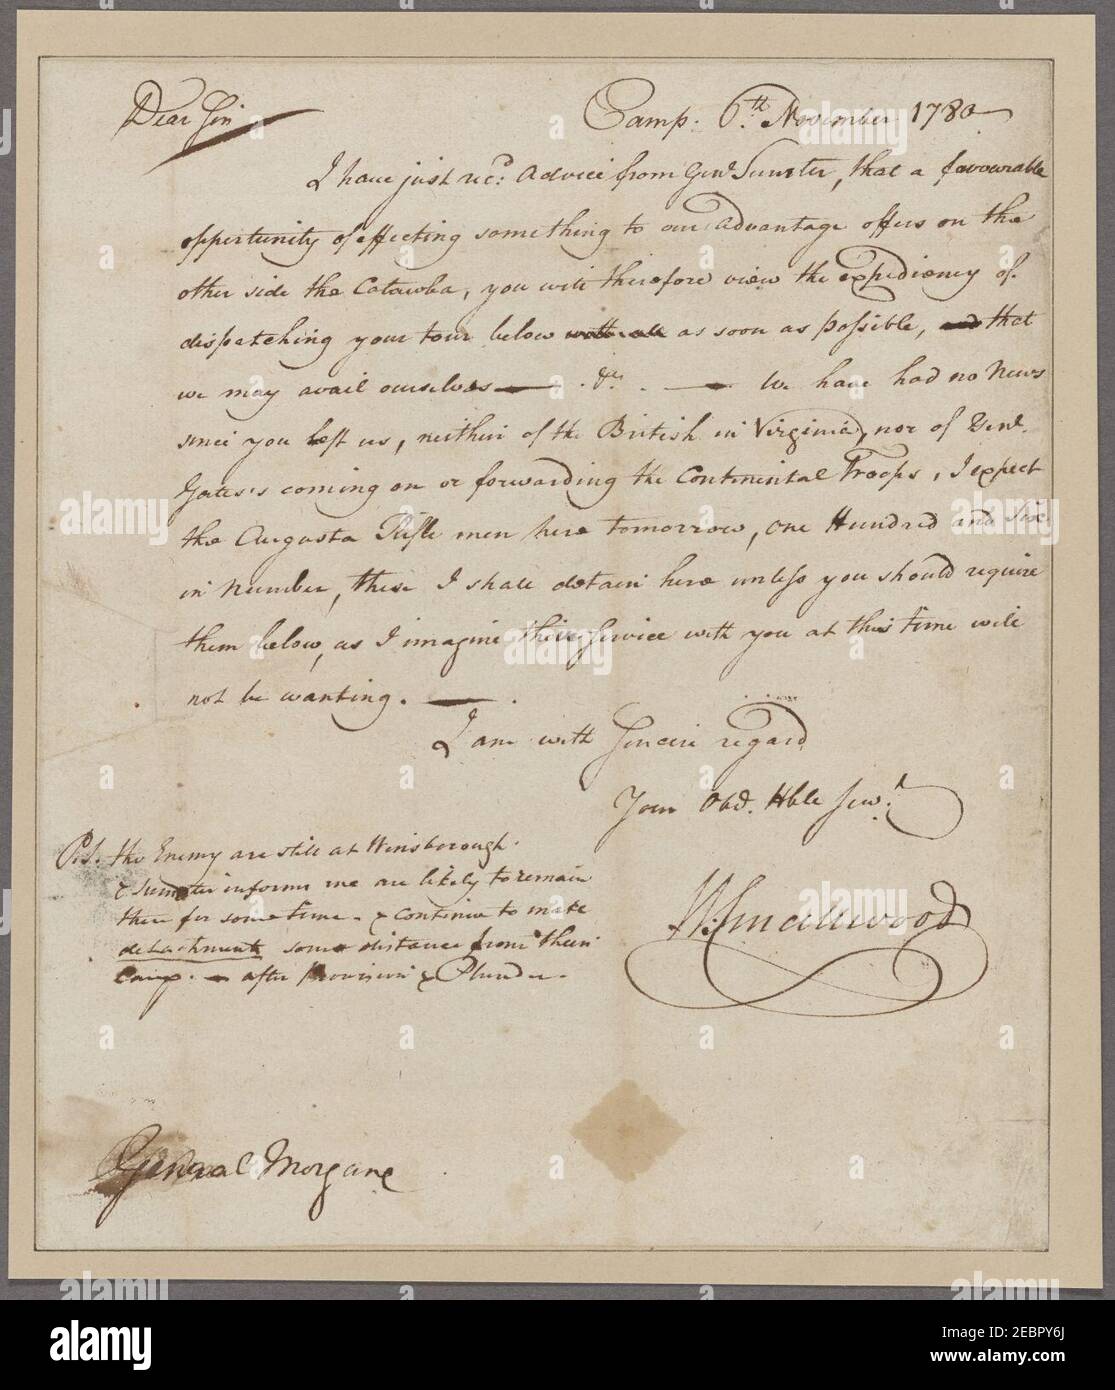 Dear Sir
Camp. 6.th November 1780
I have just rec.d Advice from Gen.l Sumter, that a favourable
opportunity of effecting something to our advantage offers on the
other side the Catawba, you will therefore view the expediency of
dispatching your tour below as soon as possible, and that
we may avail ourselves — &c. — We have had no News
since you left us, neither of the British in Virginia, nor of Genl.
Gates's coming on or forwarding the Continental Troops, I expect
the Augusta Rifle men here tomorrow, one Hundred and six
in Number, these I shall detain here unless you should require
them below, as I imagine their Service with you at this time will
not be wanting. —
I am with Sincere regard
Your Obd. Hble Serv.t
W. Smallwood
P.S. the Enemy are still at Winsborough.
& Sumter informs me are likely to remain
there for some time. & continue to make
detachments some distance from their
Camp. — after Provision & Plunder.
General Morgane
alamy
Image ID: 2EBPY6J
www.alamy.com